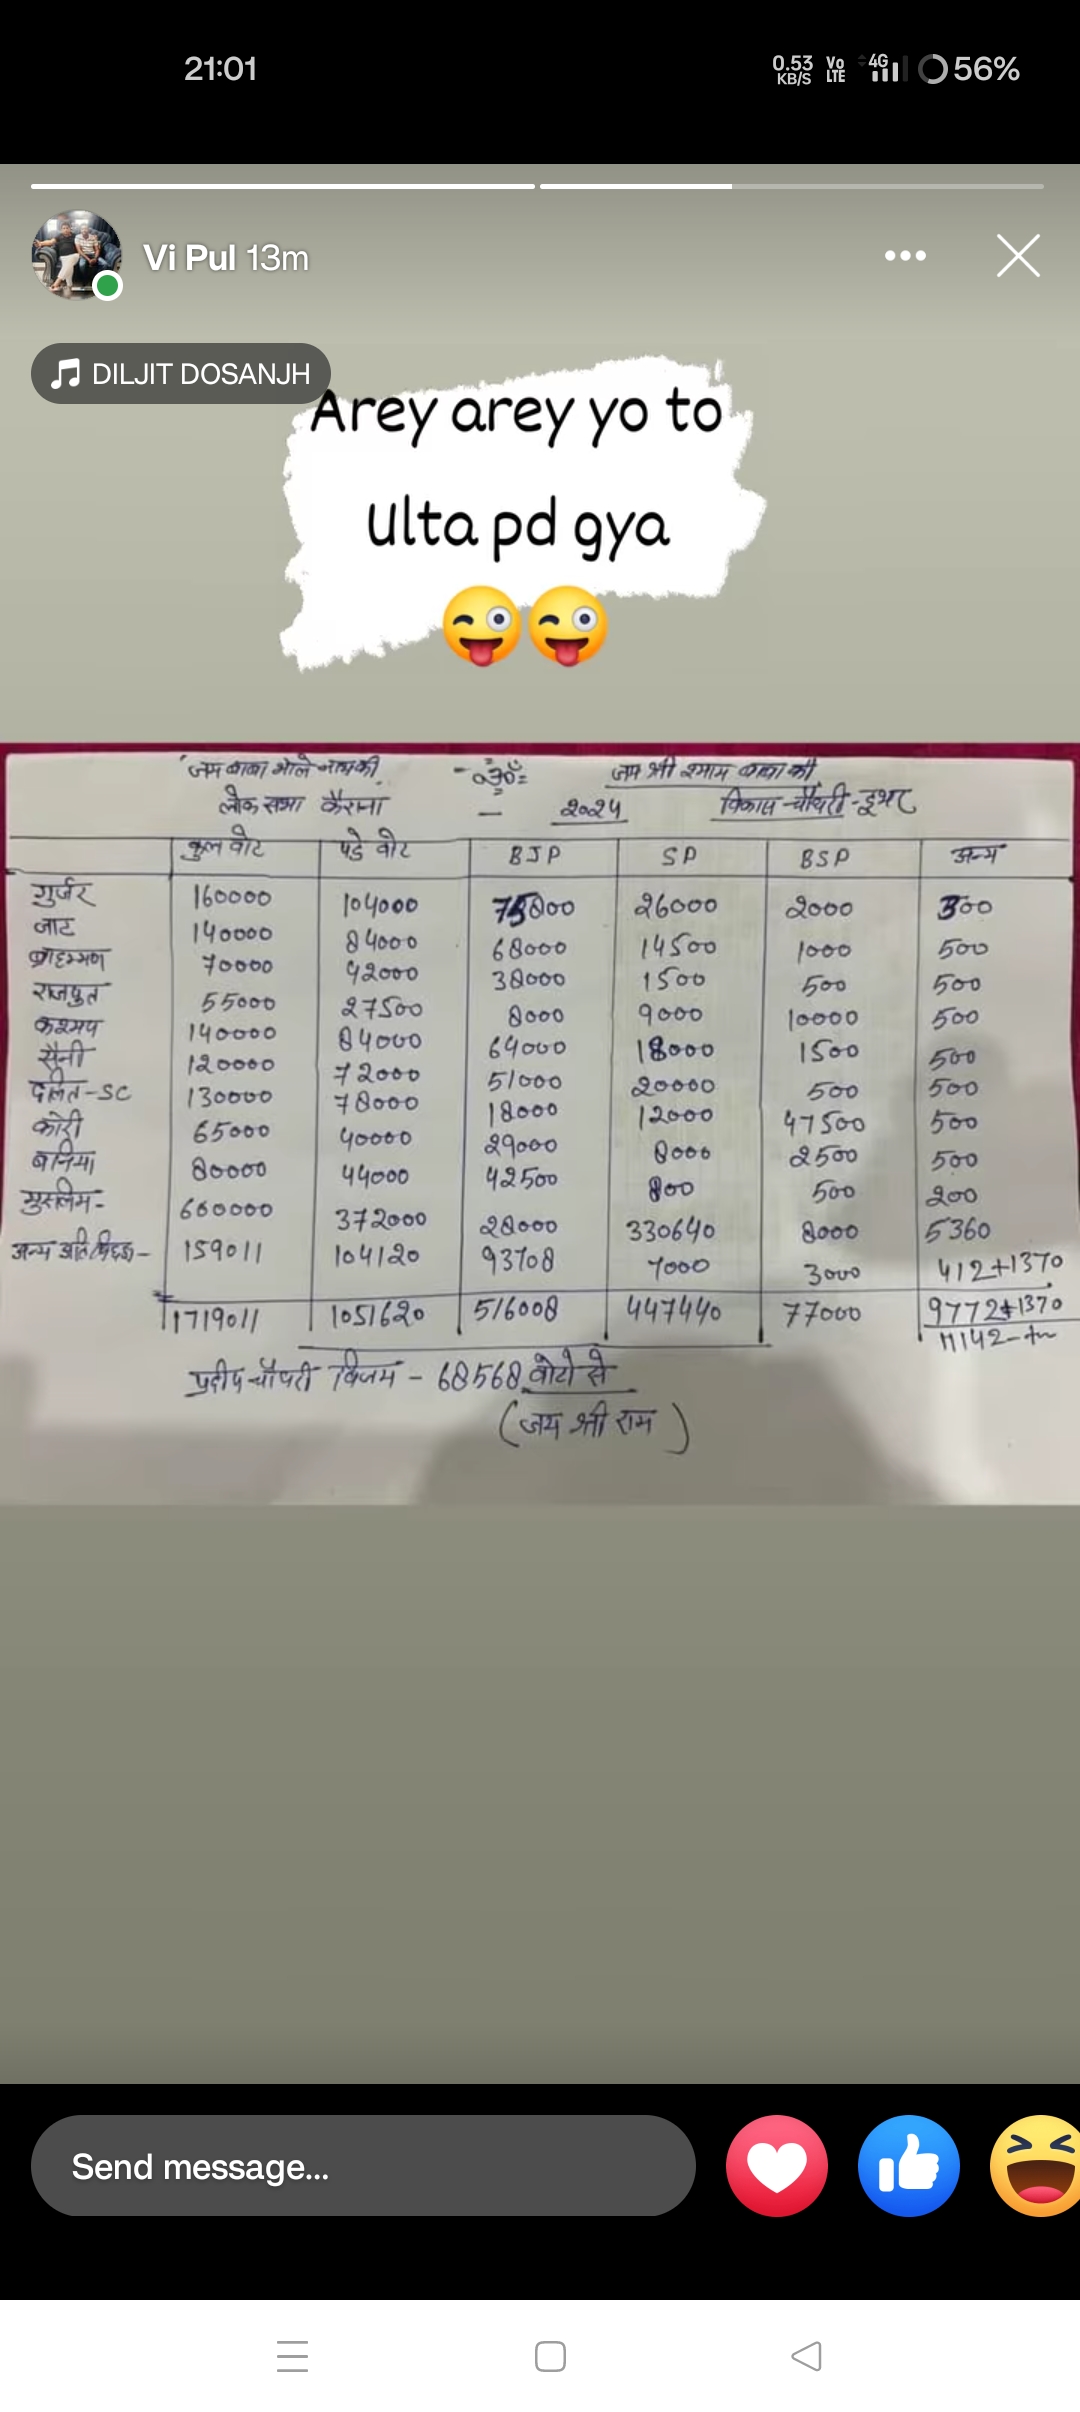 21:01
0.53 KB/S Vo LTE 4G 56%
Vi Pul 13m
DILJIT DOSANJH
Arey arey yo to
ulta pd gya
😜😜
जय बाबा भोले नाथ की - ॐ = जय श्री श्याम बाबा की
लोक सभा कैराना — २०२४ विकास चौधरी-
कुल वोट पडे वोट BJP SP BSP अन्य
गुर्जर 160000 104000 26000 2000
जाट 140000 84000 68000 14500 1000 500
ब्राहम्मण 70000 42000 38000 1500 500 500
राजपुत 55000 27500 8000 9000 10000 500
कश्यप 140000 84000 64000 18000 1500 500
सैनी 120000 72000 51000 20000 500 500
दलित-SC 130000 78000 18000 12000 47500 500
कोरी 65000 40000 29000 8000 2500 500
बनिया 80000 44000 42500 800 500 200
मुस्लिम- 372000 28000 330640 8000 5360
अन्य अति पिछडा- 159011 104120 93708 7000 3000 412+1370
1719011 1051620 516008 447440 77000 9772+1370
11142-
प्रदीप चौधरी विजय - 68568 वोटो से
(जय श्री राम)
Send message...